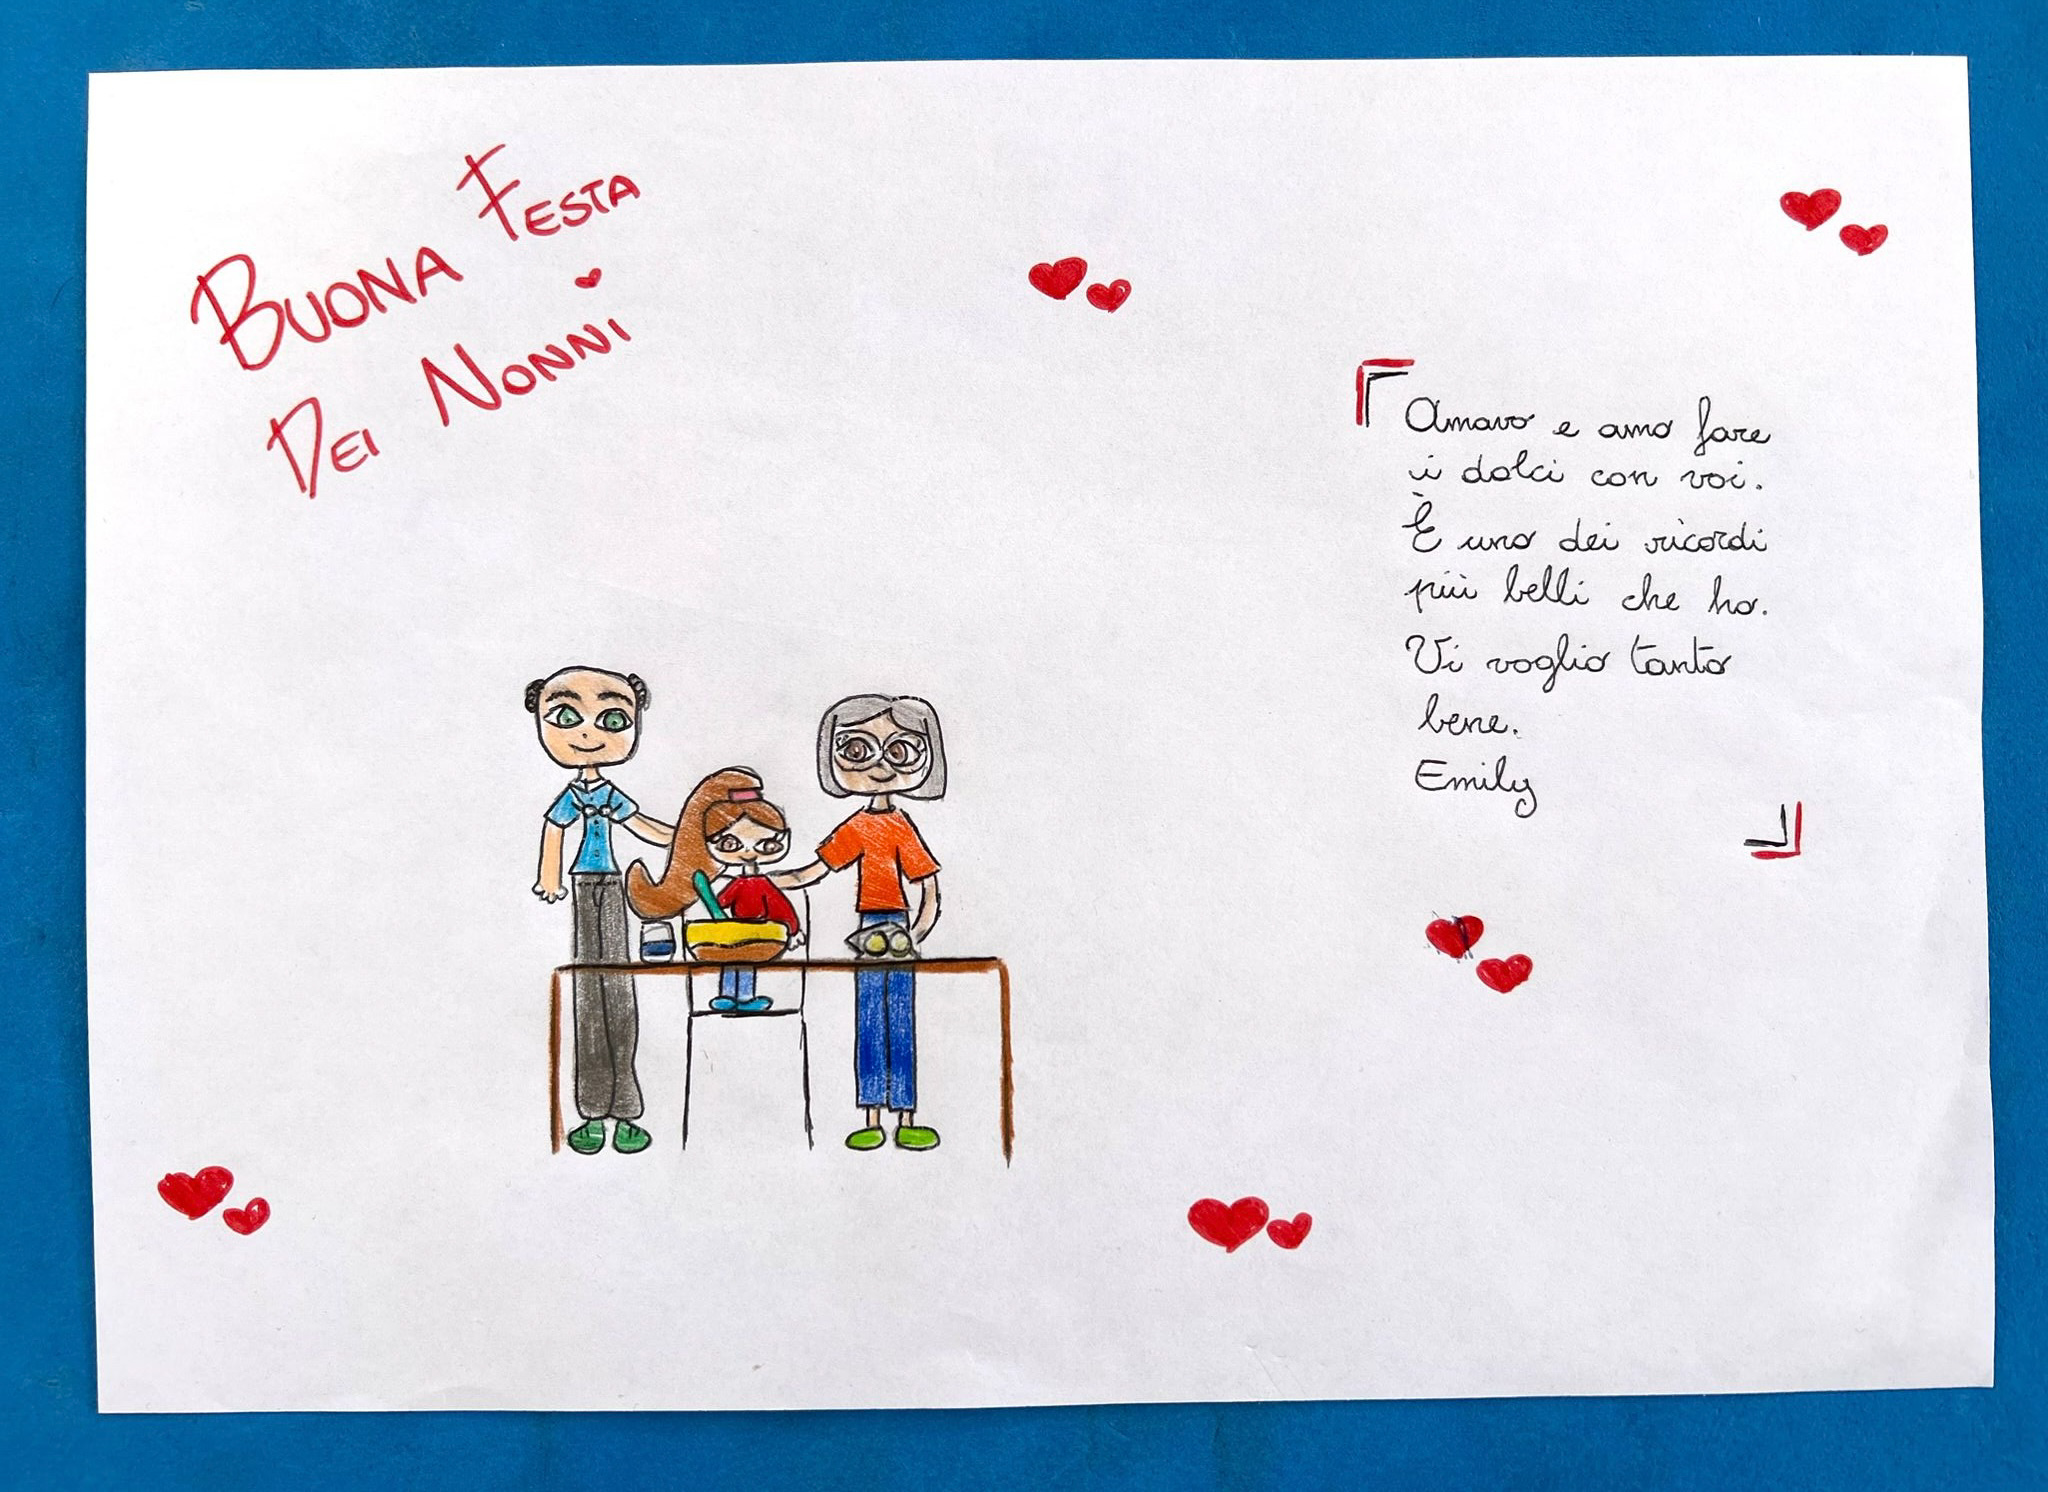 BUONA FESTA
DEI NONNI
Amavo e amo fare
i dolci con voi.
È uno dei ricordi
più belli che ho.
Vi voglio tanto
bene.
Emily